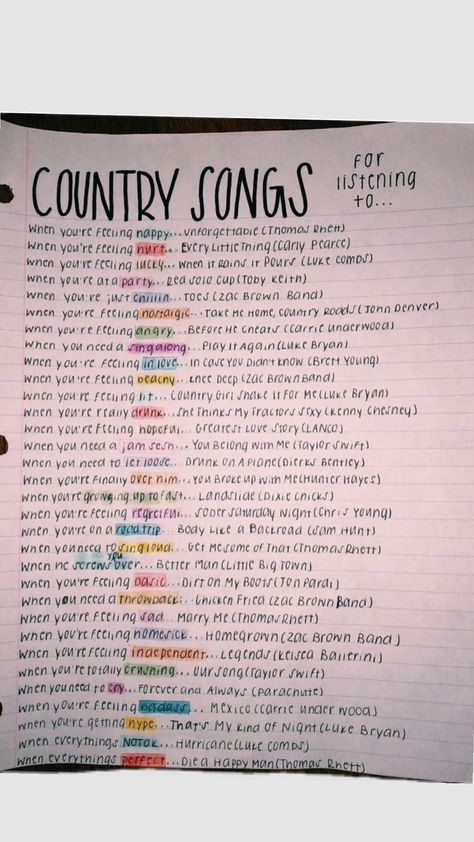 COUNTRY SONGS
FOR
listening
to...
When you're feeling happy... Unforgettable (Thomas Rhett)
When you're feeling hurt... Every Little Thing (Carly Pearce)
When you're feeling lucky... When it Rains it Pours (Luke Combs)
When you're at a party... Red Solo Cup (Toby Keith)
When you're just chillin... Toes (Zac Brown Band)
When you're feeling nostalgic... Take Me Home, Country Roads (John Denver)
When you're feeling angry... Before He Cheats (Carrie Underwood)
When you need a singalong... Play it Again (Luke Bryan)
When you're feeling in love... In Case You Didn't Know (Brett Young)
When you're feeling beachy... Knee Deep (Zac Brown Band)
When you're feeling lit... Country Girl Shake it For Me (Luke Bryan)
When you're really drunk... She Thinks My Tractors Sexy (Kenny Chesney)
When you're feeling hopeful... Greatest Love Story (LANCO)
When you need a jam sesh... You Belong With Me (Taylor Swift)
When you need to let loose... Drunk on a Plane (Dierks Bentley)
When you're finally over him... You Broke Up With Me (Hunter Hayes)
When you're growing up to fast... Landslide (Dixie Chicks)
When you're feeling regretful... Sober Saturday Night (Chris Young)
When you're on a road trip... Body Like a Backroad (Sam Hunt)
When you need to sing loud... Get Me Some of That (Thomas Rhett)
When he screws you over... Better Man (Little Big Town)
When you're feeling basic... Dirt on My Boots (Jon Pardi)
When you need a throwback... Chicken Fried (Zac Brown Band)
When you're feeling sad... Marry Me (Thomas Rhett)
When you're feeling homesick... Homegrown (Zac Brown Band)
When you're feeling independent... Legends (Kelsea Ballerini)
When you're totally crushing... Our Song (Taylor Swift)
When you need to cry... Forever and Always (Parachute)
When you're feeling badass... Mexico (Carrie Underwood)
When you're getting hype... That's My Kind of Night (Luke Bryan)
When everythings NOT OK... Hurricane (Luke Combs)
When everythings perfect... Die a Happy Man (Thomas Rhett)